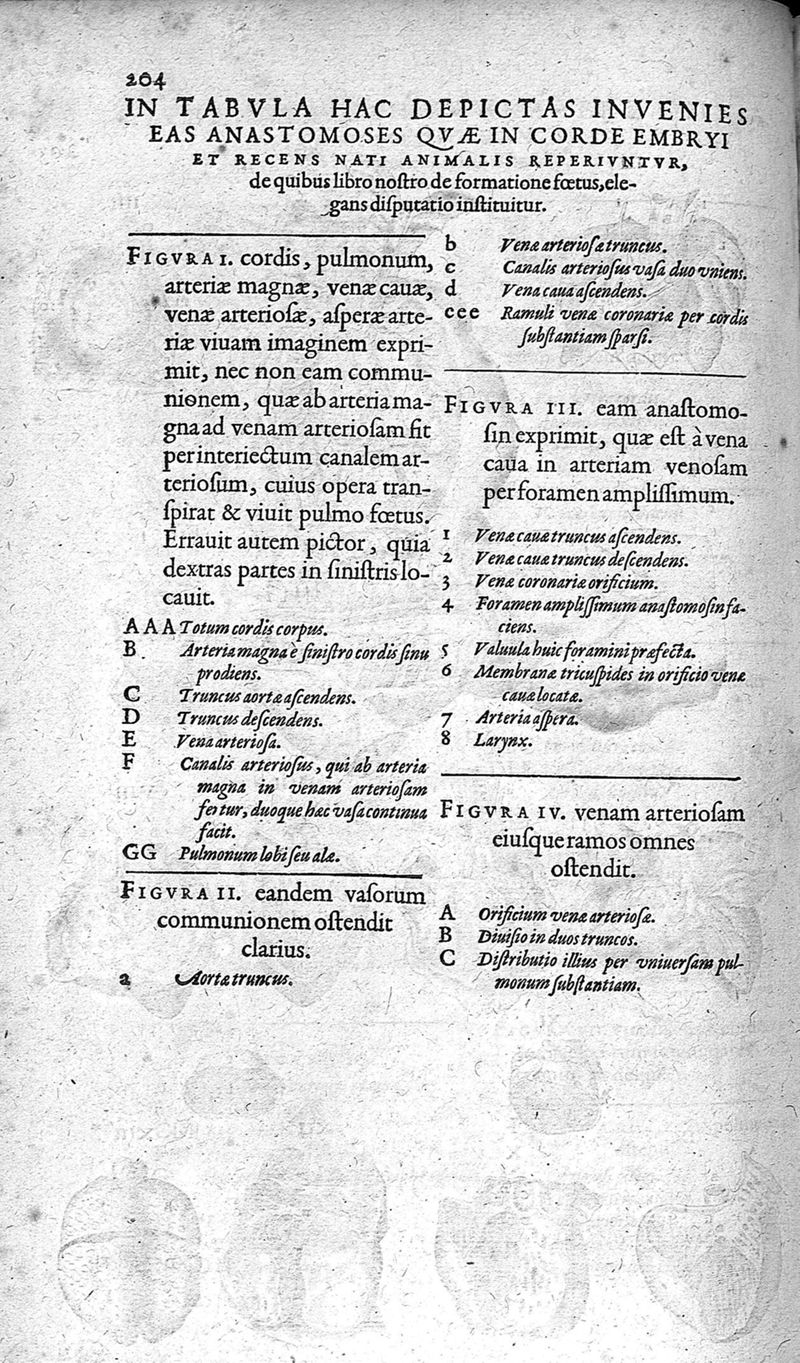 204
IN TABVLA HAC DEPICTAS INVENIES
EAS ANASTOMOSES QVÆ IN CORDE EMBRYI
ET RECENS NATI ANIMALIS REPERIVNTVR,
de quibus libro noſtro de formatione fœtus, ele-
gans diſputatio inſtituitur.
FIGVRA I. cordis, pulmonum,
arteriæ magnæ, venæ cauæ,
venæ arterioſæ, aſperæ arte-
riæ viuam imaginem expri-
mit, nec non eam commu-
nionem, quæ ab arteria ma-
gna ad venam arterioſam fit
per interiectum canalem ar-
terioſum, cuius opera tran-
ſpirat & viuit pulmo fœtus.
Errauit autem pictor, quia
dextras partes in ſiniſtris lo-
cauit.
A A A Totum cordis corpus.
B. Arteria magna e ſiniſtro cordis ſinu
prodiens.
C Truncus aortæ aſcendens.
D Truncus deſcendens.
E Vena arterioſa.
F Canalis arterioſus, qui ab arteria
magna in venam arterioſam
fertur, duoque hæc vaſa continua
facit.
GG Pulmonum lobi ſeu alæ.
FIGVRA II. eandem vaſorum
communionem oſtendit
clarius.
a Aortæ truncus.
b Venæ arterioſæ truncus.
c Canalis arterioſus vaſa duo vniens.
d Vena caua aſcendens.
c e e Ramuli venæ coronariæ per cordis
ſubſtantiam ſparſi.
FIGVRA III. eam anaſtomo-
ſin exprimit, quæ eſt à vena
caua in arteriam venoſam
per foramen ampliſſimum.
1 Venæ cauæ truncus aſcendens.
2 Venæ cauæ truncus deſcendens.
3 Venæ coronariæ orificium.
4 Foramen ampliſſimum anaſtomoſin fa-
ciens.
5 Valuula huic foramini præfecta.
6 Membranæ tricuſpides in orificio venæ
cauæ locatæ.
7 Arteria aſpera.
8 Larynx.
FIGVRA IV. venam arterioſam
eiuſque ramos omnes
oſtendit.
A Orificium venæ arterioſæ.
B Diuiſio in duos truncos.
C Diſtributio illius per vniuerſam pul-
monum ſubſtantiam.